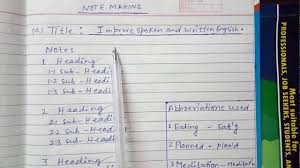 NOTE MAKING
(a) Title : Improve spoken and written English.
Notes
1 Heading
1.1 Sub-Headi
1.2 Sub-Headi
1.3 Sub-Headi
2 Heading
2.1 Sub-Headi
2.2 Sub-Headi
2.3 Sub-Headi
3 Heading
Abbreviations used
1 Eating - Eat'g
2 Planned - plan'd
3 Meditation - Meditat
Most suitable for
PROFESSIONALS, JOB SEEKERS, STUDENTS,